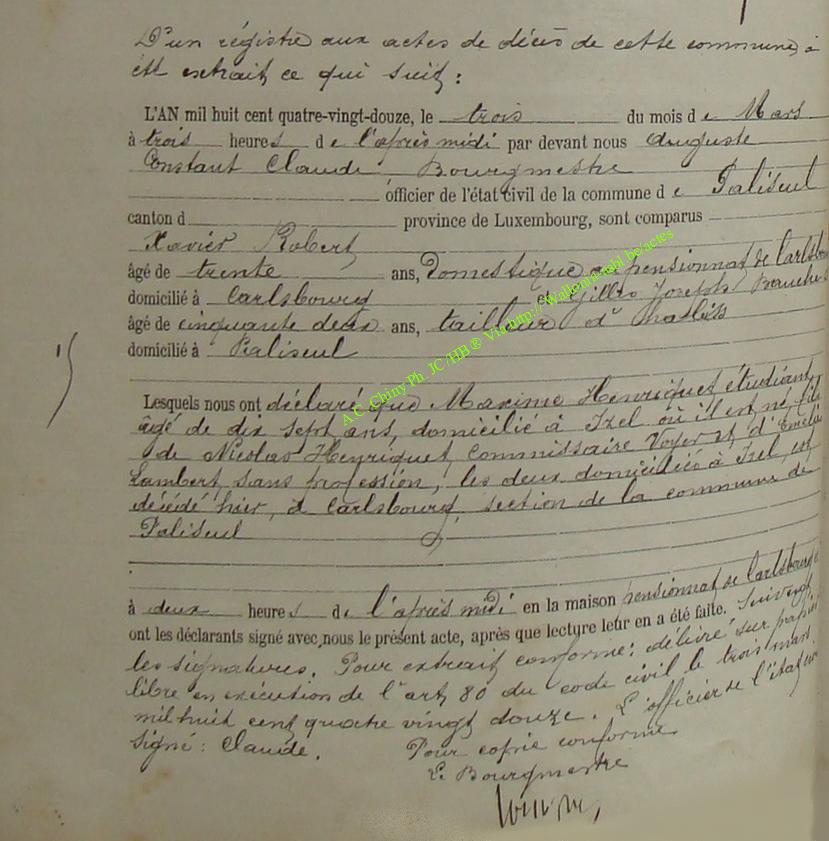 D'un régistre aux actes de décès de cette commune, à
été extrait ce qui suit :
L'AN mil huit cent quatre-vingt-douze, le trois du mois d e Mars
à trois heures d e l'après midi par devant nous Auguste
Constant Claude Bourgmestre
officier de l'état civil de la commune d e Paliseul
canton d province de Luxembourg, sont comparus
Xavier Robert
âgé de trente ans, Domestique au pensionnat de Carlsbourg
domicilié à Carlsbourg et Gilles Joseph
âgé de cinquante deux ans, tailleur d'habits
domicilié à Paliseul
Lesquels nous ont déclaré que Maxime Henriquet étudiant,
âgé de dix sept ans, domicilié à Izel où il est né, fils
de Nicolas Henriquet, commissaire Voyer et d'Emélie
Lambert, sans profession, les deux domiciliés à Izel, est
décédé hier, à Carlsbourg, section de la commune de
Paliseul
à deux heures de l'après midi en la maison pensionnat de Carlsbourg et
ont les déclarants signé avec nous le présent acte, après que lecture leur en a été faite. Suivent
les signatures. Pour extrait conforme: délivré sur papier
libre en exécution de l'art 80 du code civil le trois mars
mil huit cent quatre vingt douze. L'officier de l'état civil
signé : Claude. Pour copie conforme
Le Bourgmestre
A.C. Chiny Ph JC /HB ® Via http://Wallonia.asbl.be/actes